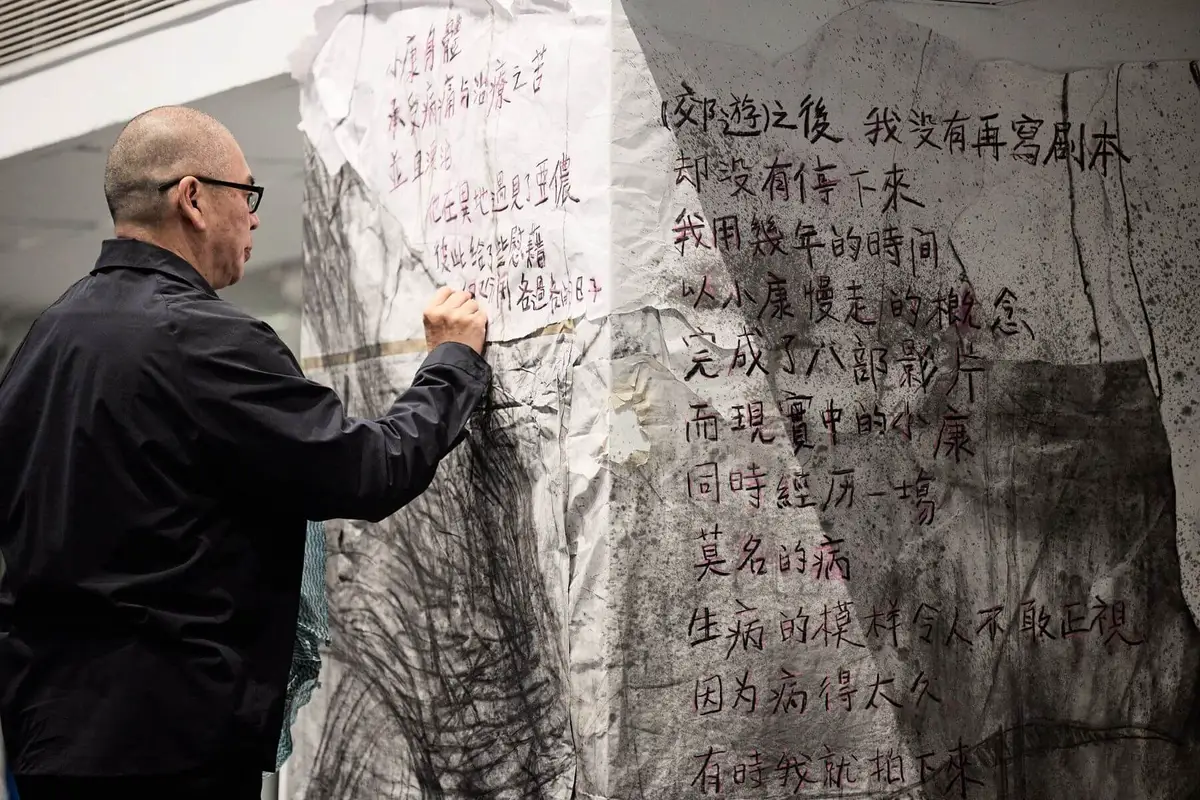 小康身體
承受病痛与治療之苦
並且
他在異地遇見了亞儂
彼此給了些慰藉
各過各的日子
(郊遊)之後 我没有再寫劇本
却没有停下來
我用幾年的時间
以小康慢走的概念
完成了八部影片
而現實中的小康
同時經历一場
莫名的病
生病的模样令人不敢正視
因为病得太久
有時我就拍下來